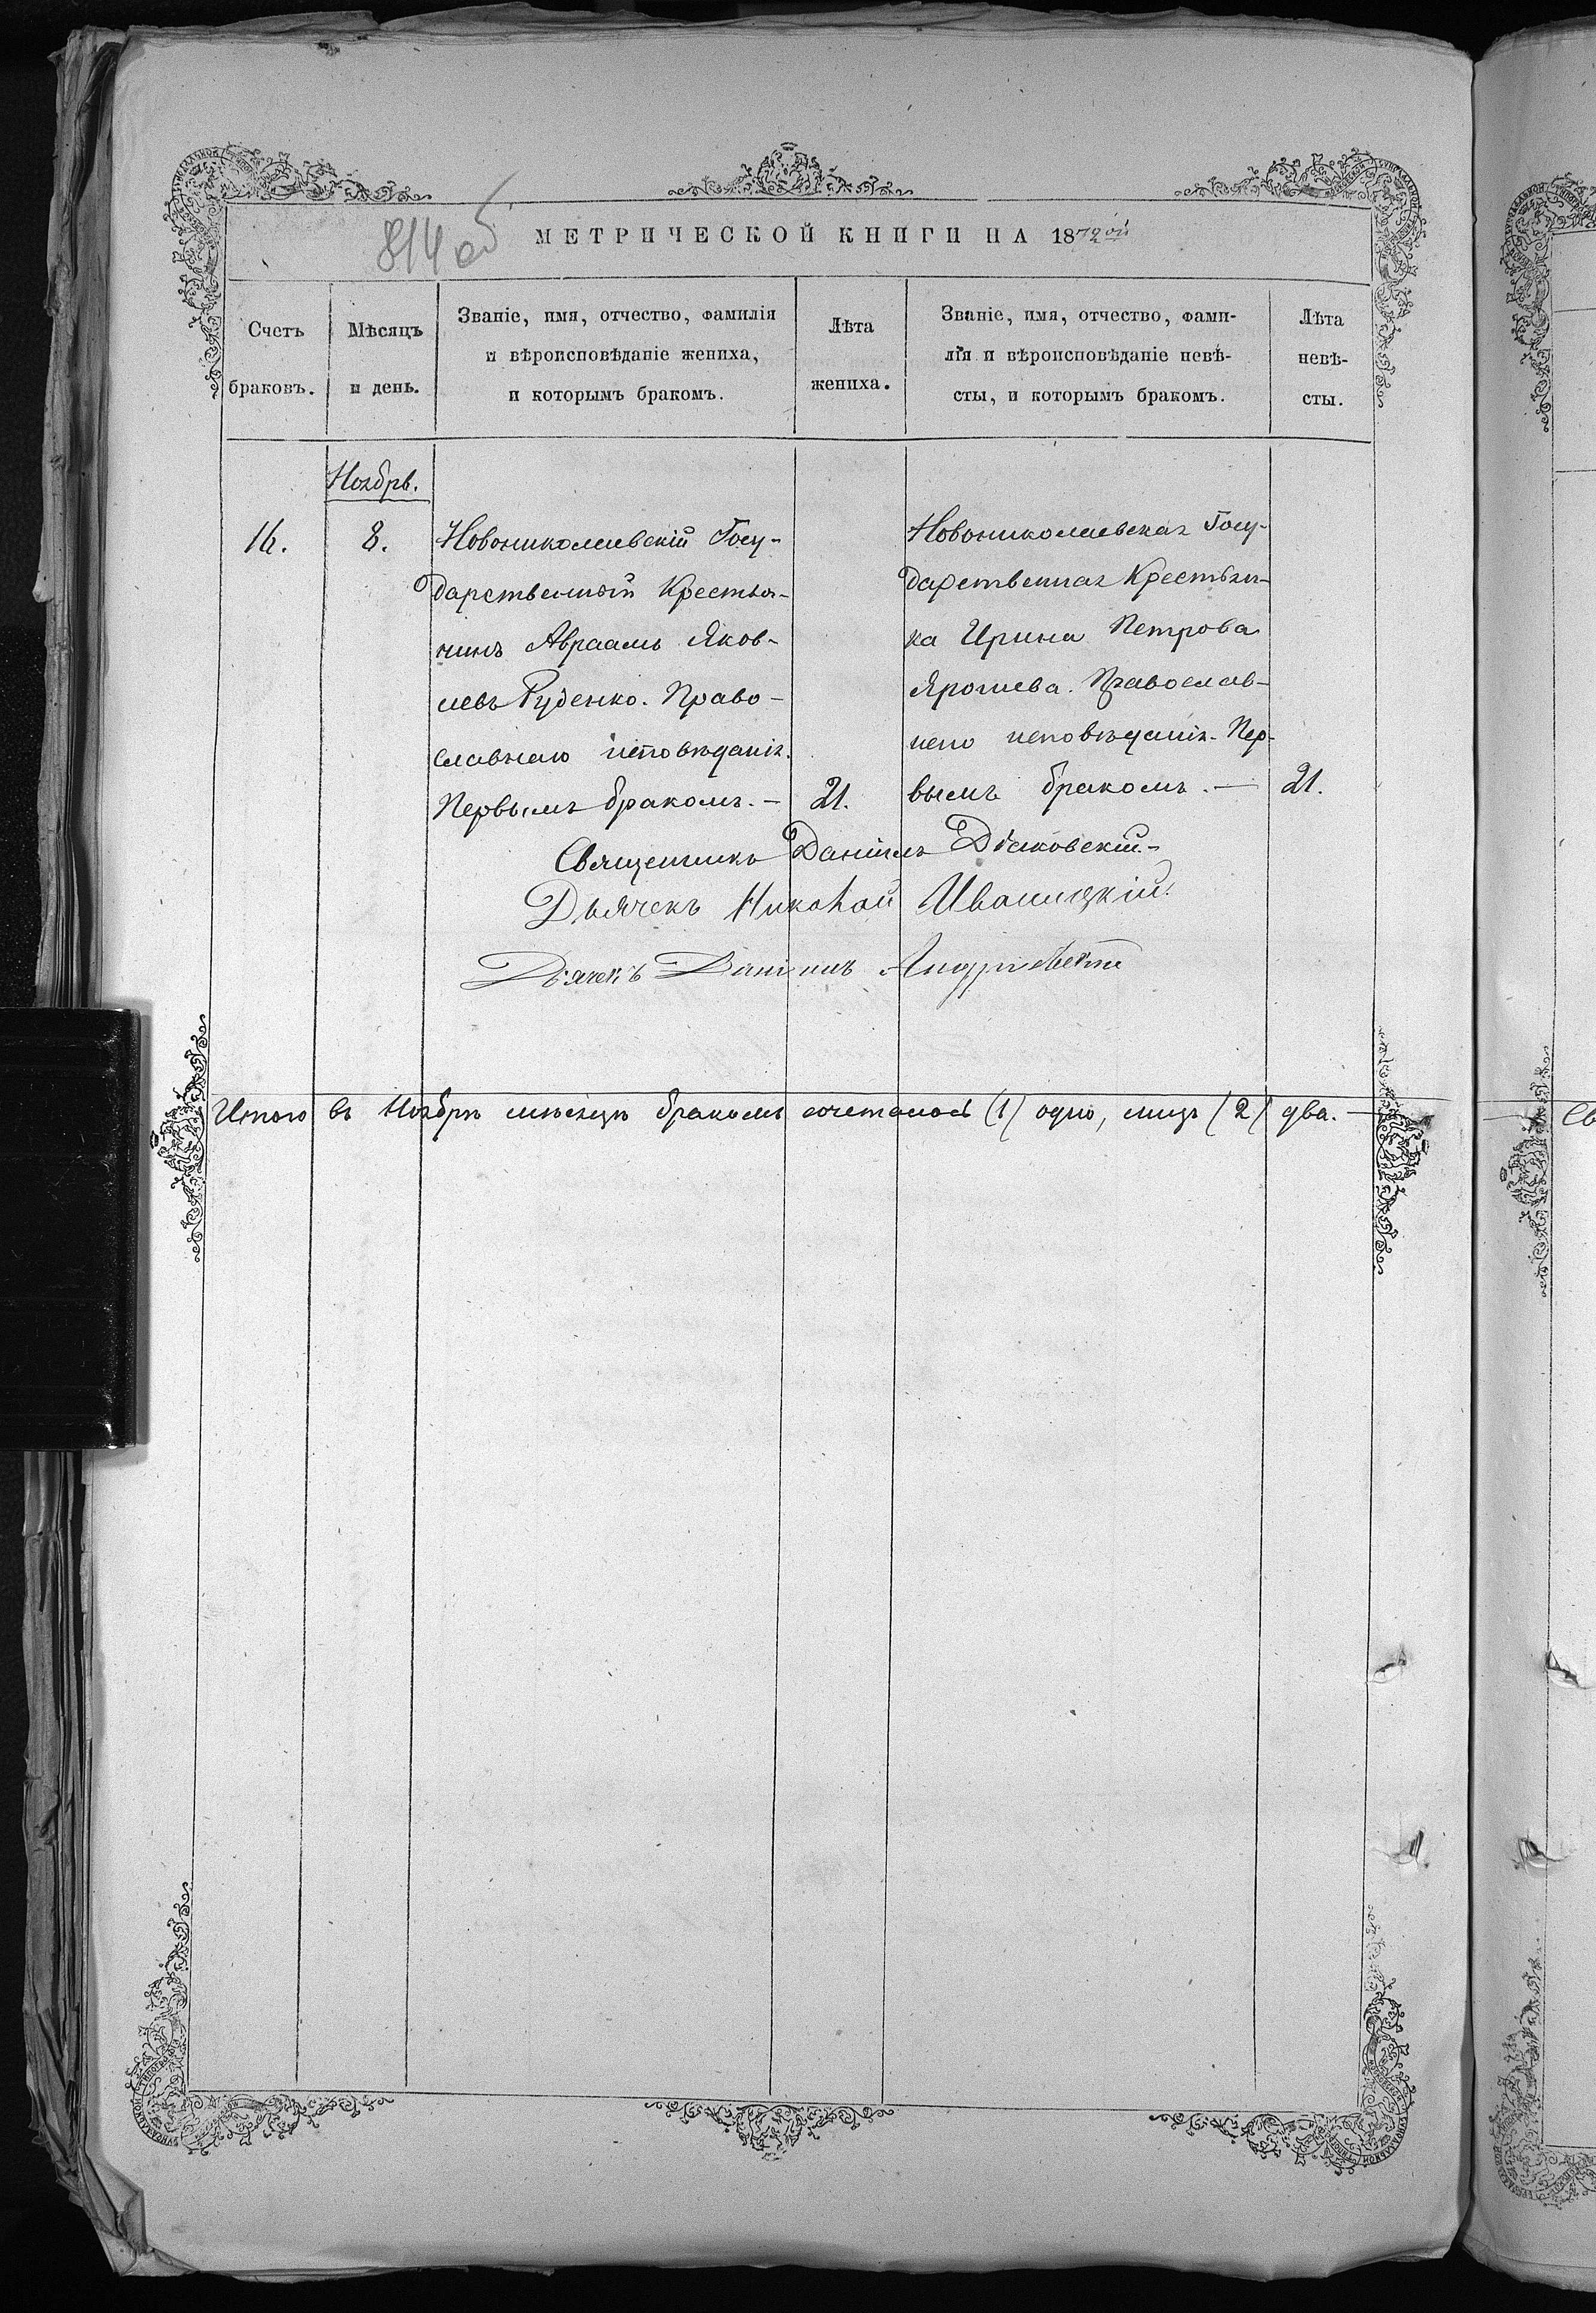 814 об
МЕТРИЧЕСКОЙ КНИГИ НА 1872ой
Счетъ браковъ.
Мѣсяцъ и день.
Званіе, имя, отчество, фамилія
и вѣроисповѣданіе жениха,
и которымъ бракомъ.
Лѣта жениха.
Званіе, имя, отчество, фами-
лія и вѣроисповѣданіе невѣ-
сты, и которымъ бракомъ.
Лѣта невѣ-
сты.
Ноябрь.
16.
8.
Новониколаевскій Госу-
дарственный Крестья-
нинъ Авраамъ Яков-
левъ Руденко. Право-
славнаго исповѣданія.
Первымъ бракомъ. —
21.
Новониколаевская Госу-
дарственная Крестьян-
ка Ирина Петрова
Ярошева. Православ-
наго исповѣданія. Пер-
вымъ бракомъ. —
21.
Священникъ Даніилъ Дѣаковскій. —
Дьячекъ Николай Иваницкій.
Дьячекъ Даніилъ
Итого въ Ноябрѣ мѣсяцѣ бракомъ сочеталось (1) одно, лицъ (2) два. —